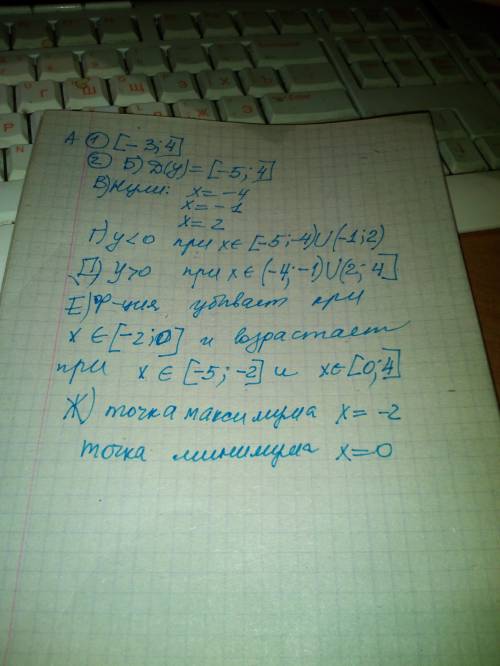 А ① [-3;4]
② Б) Д(y)=[-5;4]
В) Нули: x=-4
x=-1
x=2
Г) y<0 при x∈[-5;-4)∪(-1;2)
Д) y>0 при x∈(-4;-1)∪(2;4]
Е) Ф-ция, убывает при
x∈[-2;0] и возрастает
при x∈[-5;-2] и x∈[0;4]
Ж) точка максимума x=-2
точка минимума x=0